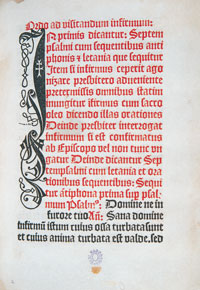 Ordo ad visitandum infirmum:
Inprimis dicantur: Septem
psalmi cum sequentibus anti
phonis & letania que sequitur
Item si infirmus ceperit ago
nizare presbitero adveniente
pretermissis omnibus statim
inungitur ifirmus cum sacro
oleo dicendo illas orationes
Deinde presbiter interrogat
infirmum si est confirmatus
ab Episcopo vel non tunc un
gatur Deinde dicantur Sep
tempsalmi cum letania et ora
tionibus sequentibus: Sequi
tur ātiphona prima sup psal
mum Psalm⁹: Domine ne in
furore tuo Añ: Sana domine
infirmū istum cuius ossa turbata sunt
et cuius anima turbata est valde. sed